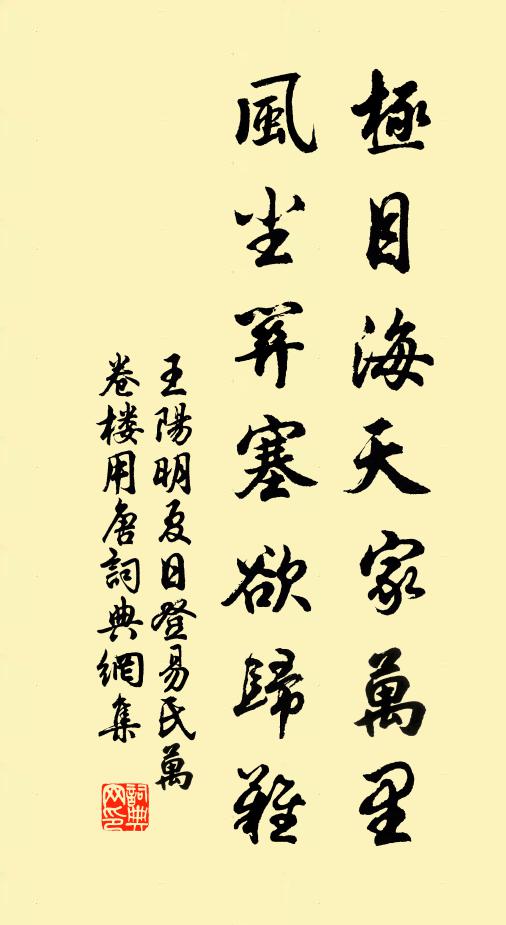 極目海天家萬里
風尘関塞欲歸難
王陽明夏日登易氏萬
卷楼用唐詞典網集
詞典
网印